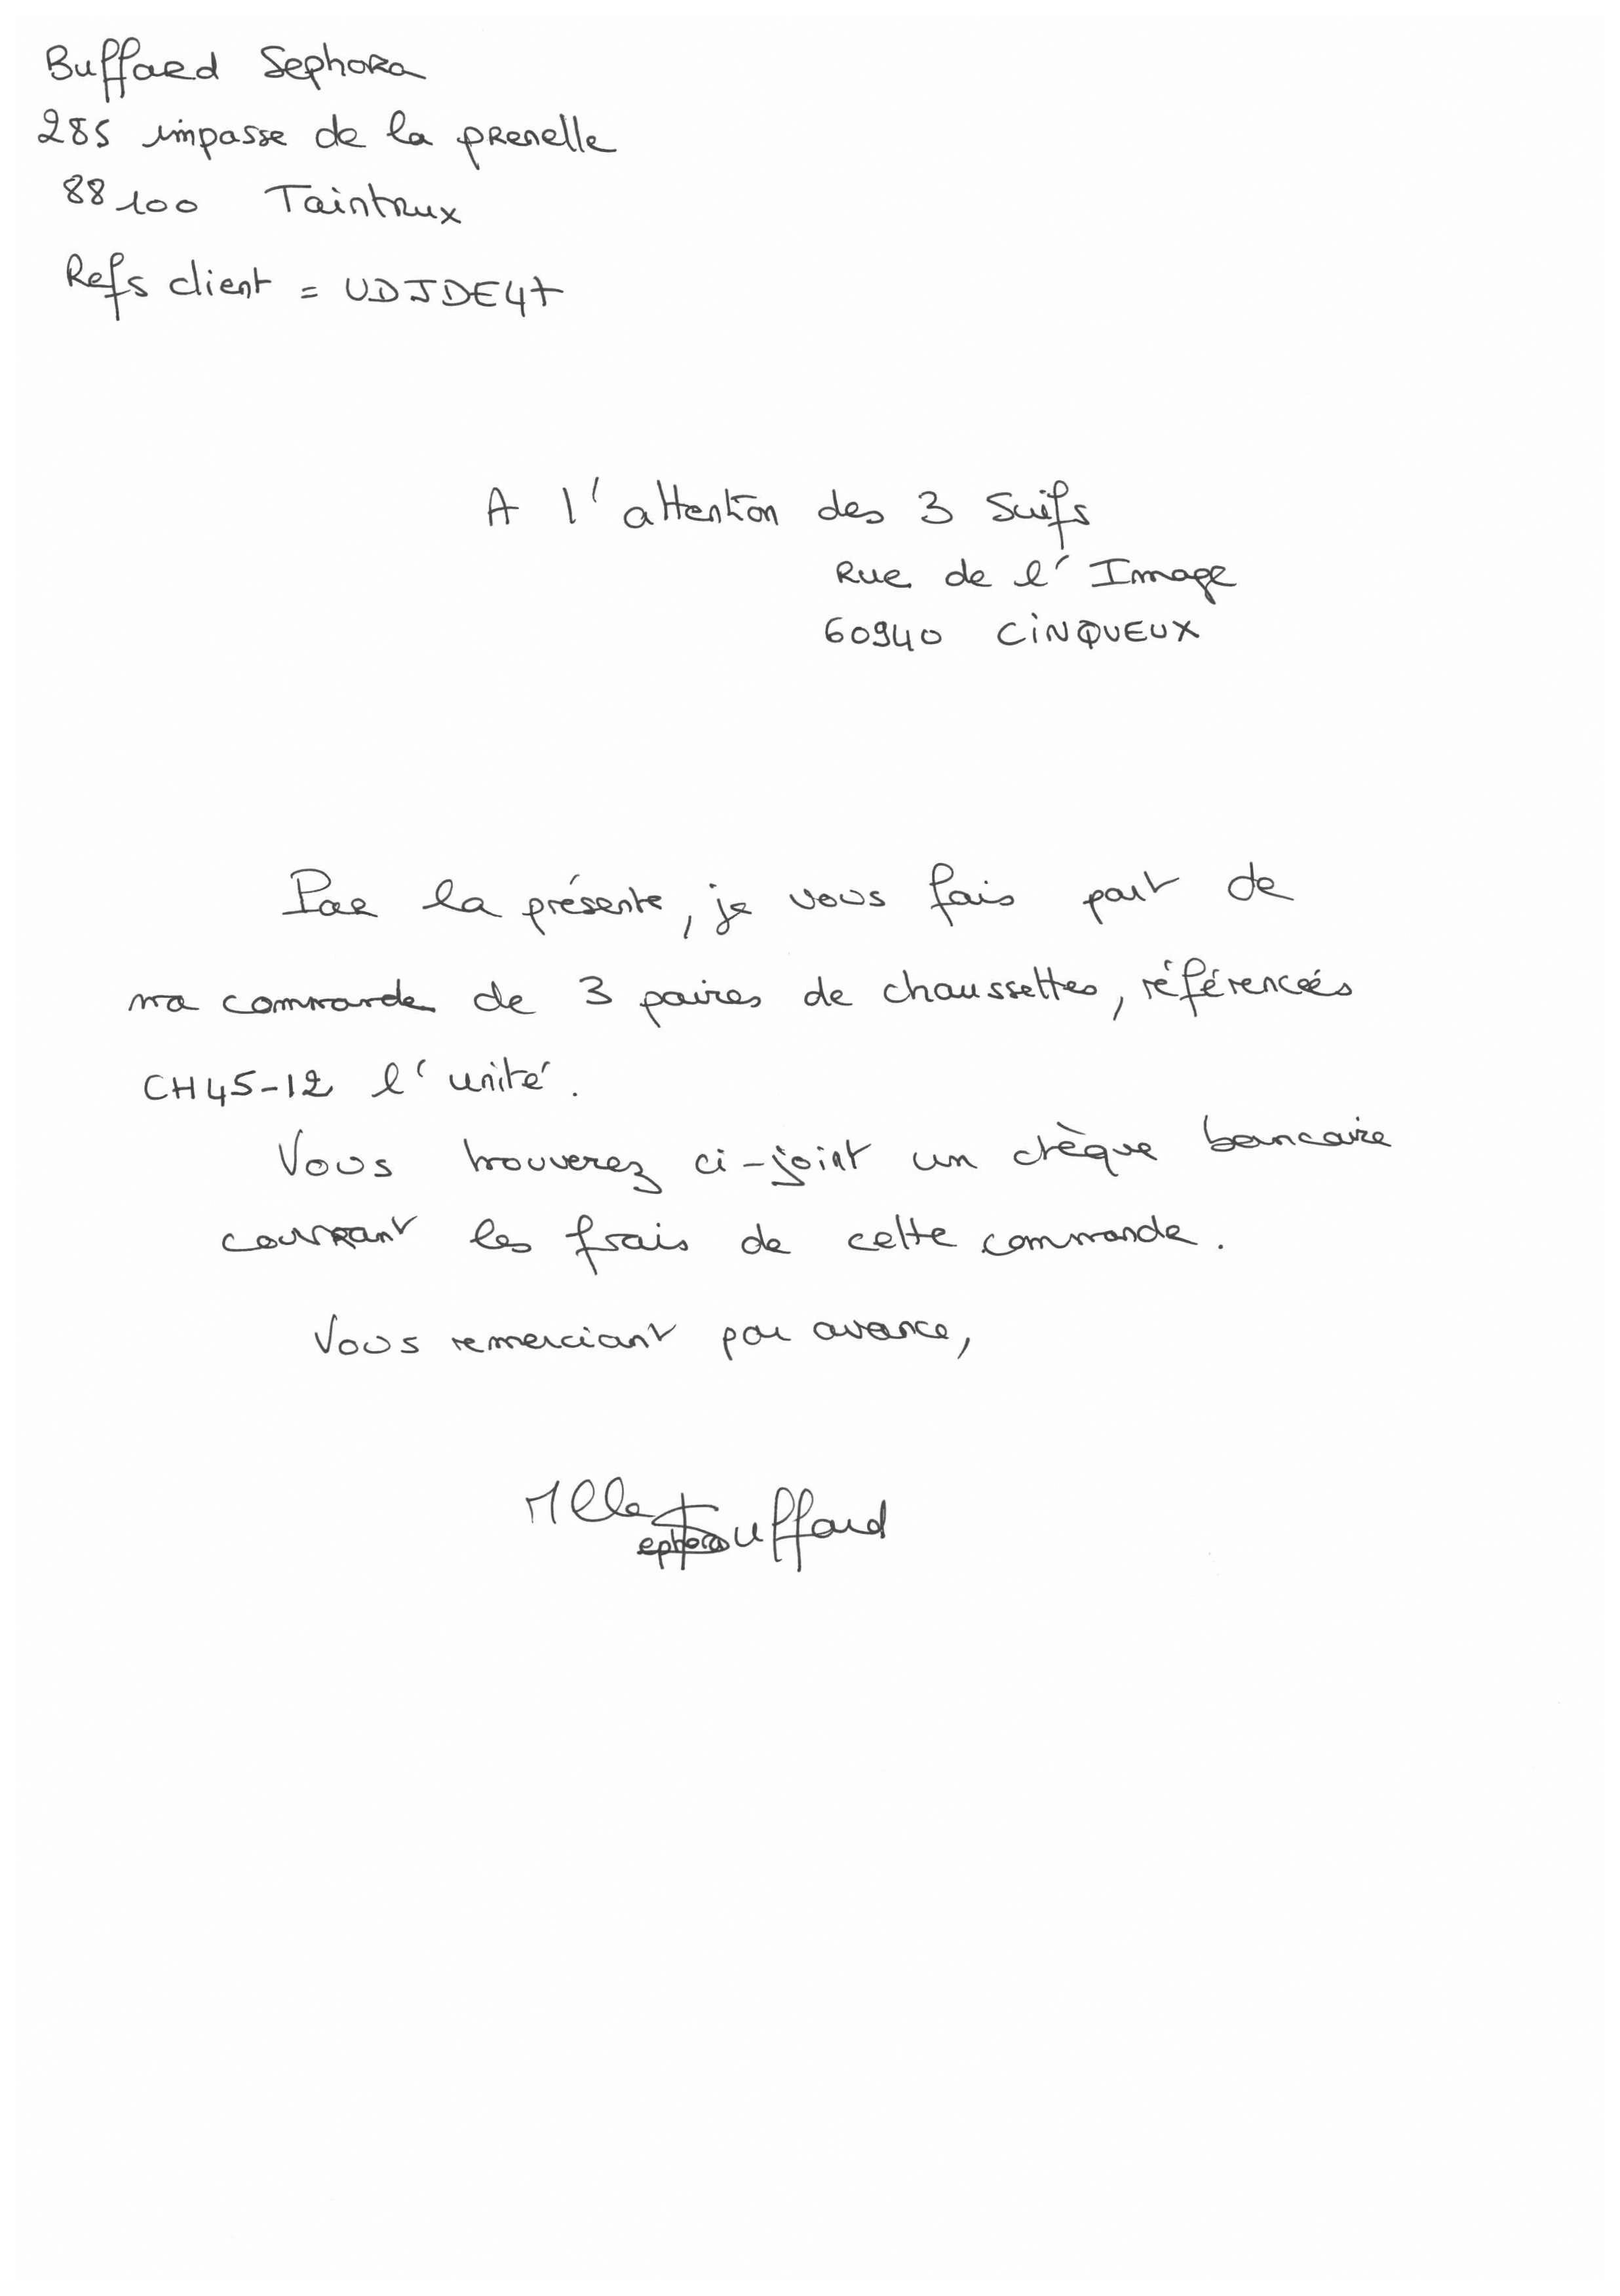 Buffard Sephora
285 impasse de la prenelle
88100 Taintrux
Refs client = UDJDE47
A l'attention des 3 Suifs
Rue de l'Image
60940 CINQUEUX
Par la présente, je vous fais part de
ma commande de 3 paires de chaussettes, référencées
CH45-12 l'unité.
Vous trouverez ci-joint un chèque bancaire
couvrant les frais de cette commande.
Vous remerciant par avance,
Mlle Sephora Buffard